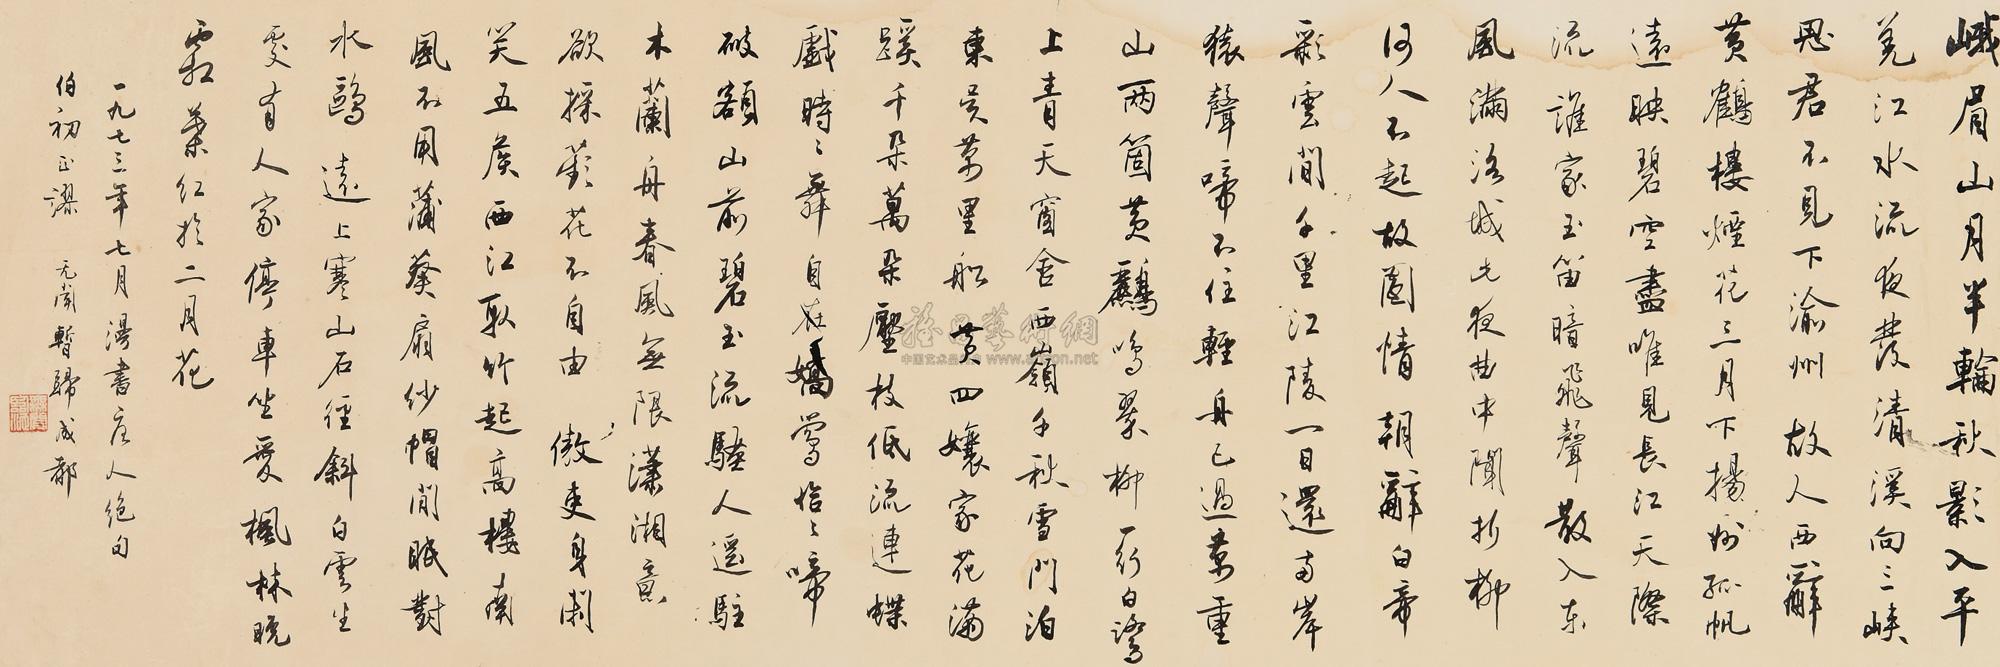 峨眉山月半輪秋影入平
羌江水流夜發清溪向三峽
思君不見下渝州 故人西辭
黃鶴樓煙花三月下揚州孤帆
遠映碧空盡唯見長江天際
流 誰家玉笛暗飛聲散入東
風滿洛城此夜曲中聞折柳
何人不起故園情 朝辭白帝
彩雲間千里江陵一日還兩岸
猿聲啼不住輕舟已過萬重
山兩箇黃鸝鳴翠柳一行白鷺
上青天窗含西嶺千秋雪門泊
東吳萬里船 黃四孃家花滿
蹊千朵萬朵壓枝低流連蝶
戲時〻舞自在嬌鶯恰〻啼
破額山前碧玉流騷人遥駐
木蘭舟春風無限瀟湘意
欲採蘋花不自由 傲吏身閑
笑五侯西江取竹起高樓南
風不用蒲葵扇紗帽閒眠對
水鷗 遠上寒山石徑斜白雲生
處有人家停車坐愛楓林晚
霜葉紅於二月花
一九七三年七月漫書唐人絕句
伯初正謬 无聞暫歸成都
雅昌藝術網